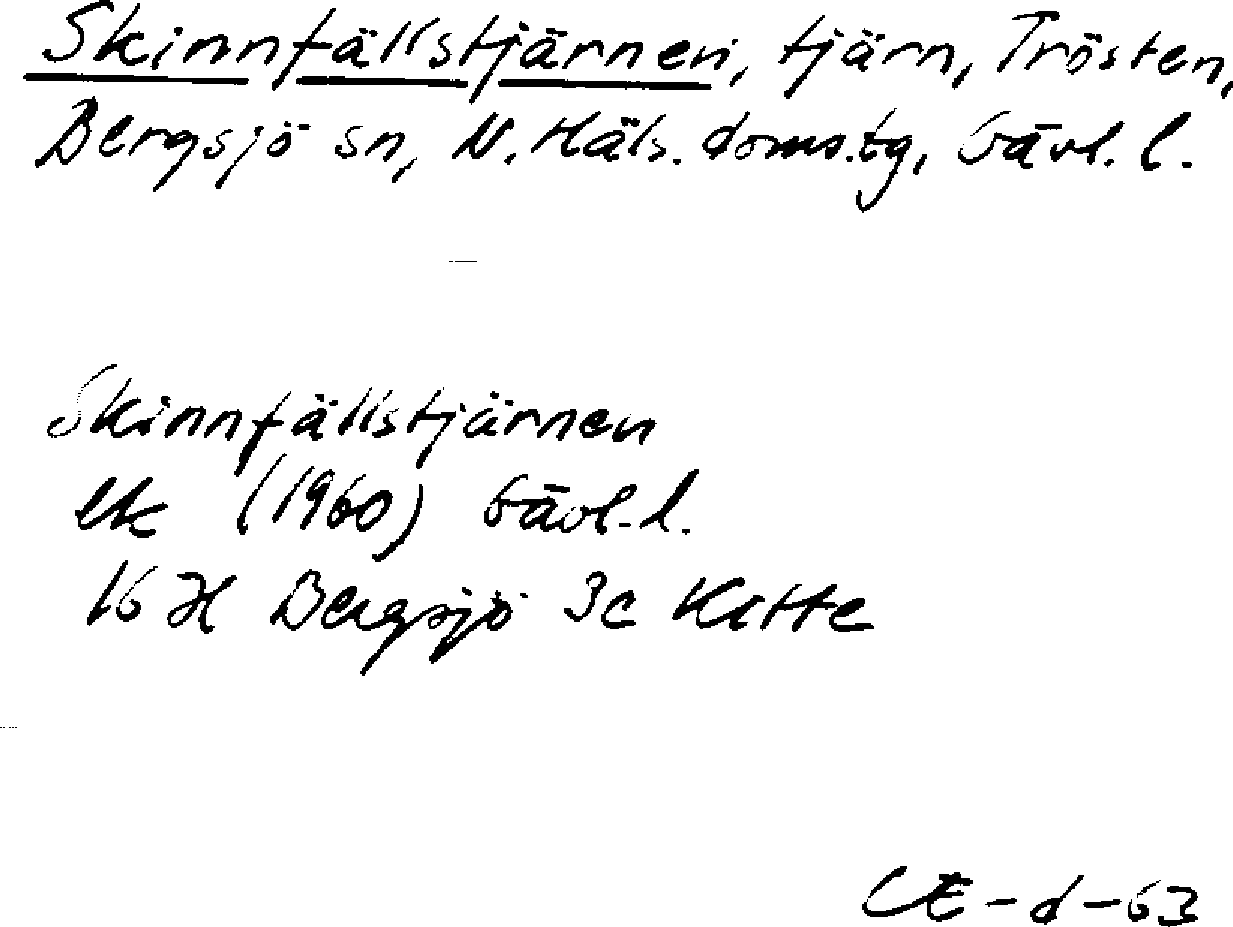 Skinnfällstjärnen, tjärn, Trösten,
Bergsjö sn, N. Häls. doms.tg, Gävl. l.
Skinnfällstjärnen
ek (1960) Gävl. l.
16 H Bergsjö 3c Kette
CE-d-63